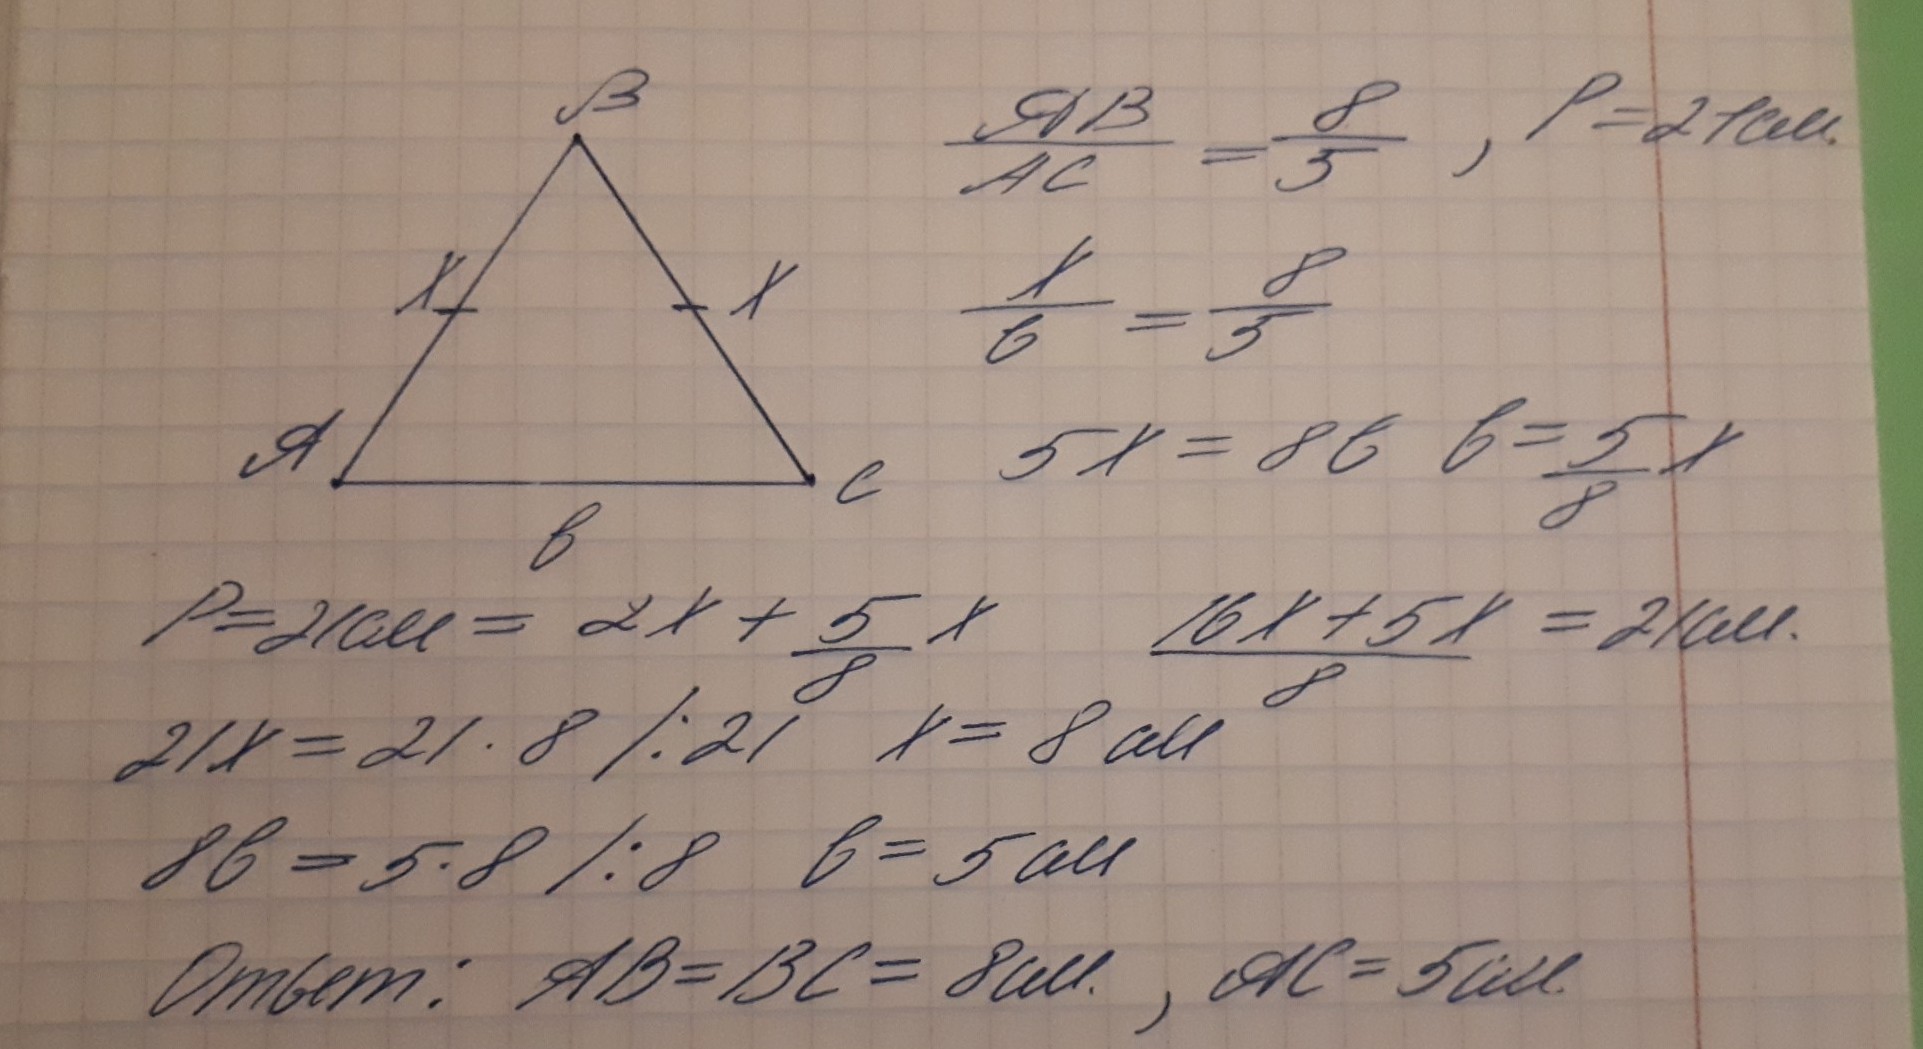 B
AB/AC = 8/5 , P=21см.
x x
x/b = 8/5
A C
5x = 8b b = 5/8 x
b
P=21см = 2x + 5/8 x (16x+5x)/8 = 21см.
21x = 21·8 /:21 x = 8см
8b = 5·8 /:8 b = 5см
Ответ: AB=BC=8см. , AC=5см.